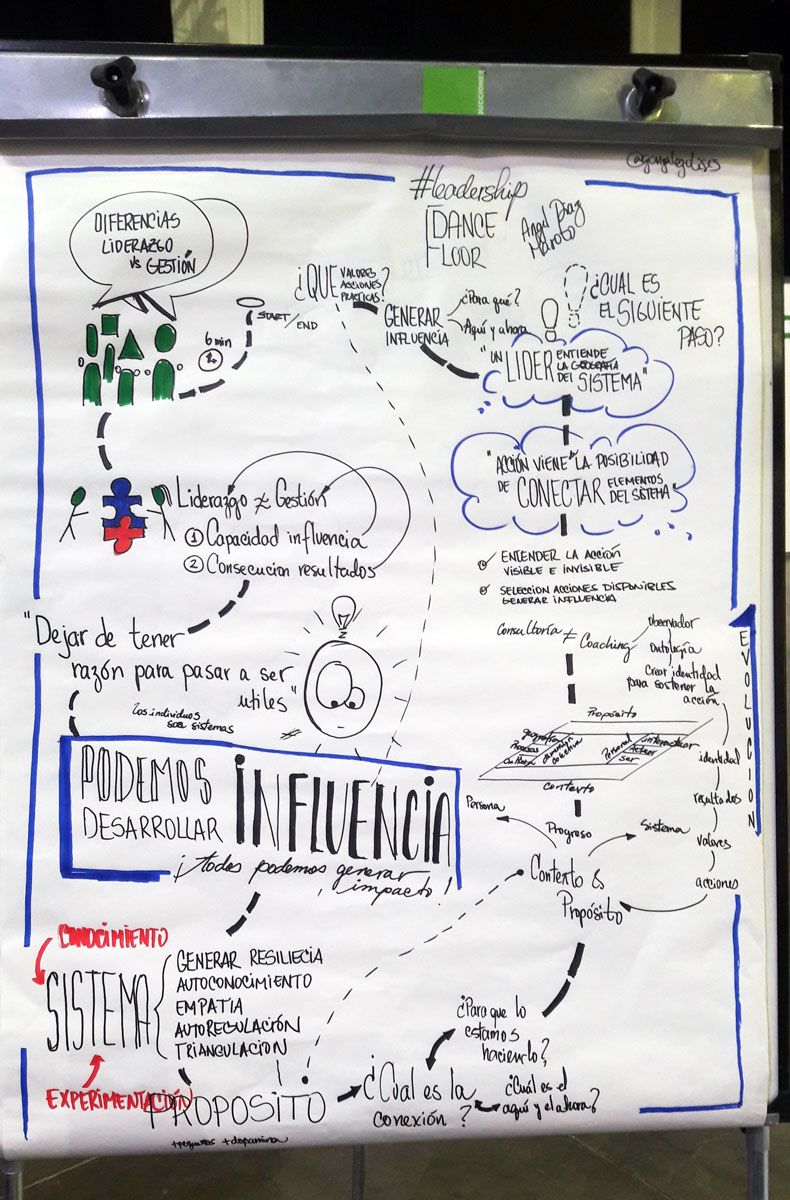 UCCIONES
@gonzalezulises
#leadership
DANCE
FLOOR
Angel Diaz
Maroto
DIFERENCIAS
LIDERAZGO
VS GESTIÓN
START/END
6 min
¿QUE VALORES
ACCIONES
PRACTICAS?
GENERAR
INFLUENCIA
¿Para qué?
Aquí y ahora
¿CUAL ES
EL SIGUIENTE
PASO?
"UN LIDER ENTIENDE
LA GEOGRAFIA
DEL SISTEMA"
"ACCIÓN VIENE DE LA POSIBILIDAD
DE CONECTAR ELEMENTOS
DEL SISTEMA"
ENTENDER LA ACCIÓN
VISIBLE E INVISIBLE
SELECCION ACCIONES DISPONIBLES
GENERAR INFLUENCIA
Liderazgo ≠ Gestión
① Capacidad influencia
② Consecucion resultados
"Dejar de tener
razón para pasar a ser
utiles"
Los individuos
son sistemas
PODEMOS
DESARROLLAR INFLUENCIA
¡todos podemos generar
impacto!
Consultoría ≠ Coaching
Observador
Ontología
Crear identidad
para sostener la
acción
identidad
resultados
valores
acciones
EVOLUCION
Propósito
Procesos
Cultura
Personal
interactuar
Actuar
ser
contexto
Persona
Progreso
Sistema
Contexto &
Propósito
CONOCIMIENTO
SISTEMA
EXPERIMENTACIÓN
GENERAR RESILIECIA
AUTOCONOCIMIENTO
EMPATIA
AUTOREGULACIÓN
TRIANGULACION
PROPOSITO
+pequeños +dopamina
¿Cual es la
conexión?
¿Para que lo
estamos
haciendo?
¿Cuál es el
aquí y el ahora?